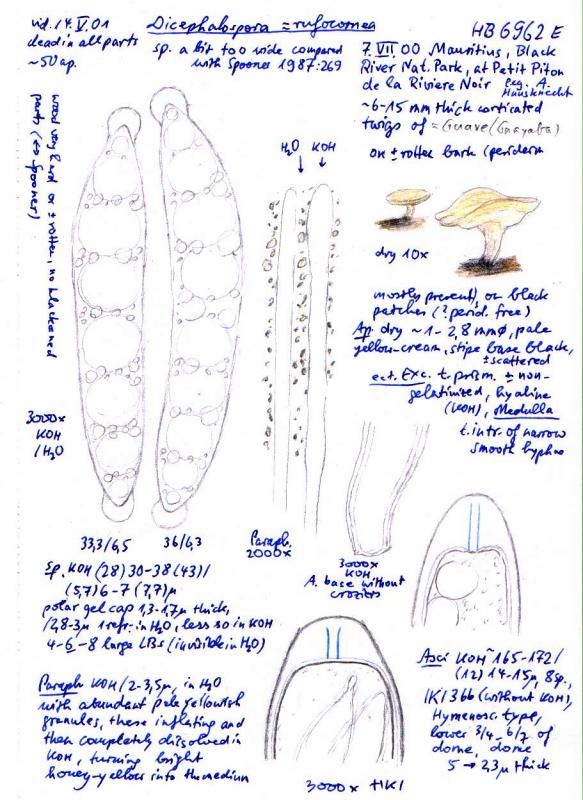 vid. 14.V.01
dead in all parts
~50 ap.
Dicephalospora ± rufocornea
sp. a bit too wide compared
with Spooner 1987:269
HB 6962 E
7.VII.00 Mauritius, Black
River Nat. Park, at Petit Piton
de la Riviere Noir leg. A.
Hausknecht
~6-15 mm thick corticated
twigs of = Guave (Guayaba)
on ± rotten bark (periderm
wood very hard or ± rotten, no blackened
parts (↔ Spooner)
H2O KOH
↓ ↓
dry 10x
mostly present, on black
patches (? perid. free)
Ap. dry ~1-2,8 mmø, pale
yellow-cream, stipe base black,
± scattered
ect. Exc. t. prism. ± non-
gelatinized, hyaline
(KOH), Medulla
t. intr. of narrow
smooth hyphae
3000x
KOH
/H2O
33,3/6,5
36/6,3
Paraph.
2000x
3000x
KOH
A. base without
croziers
Sp. KOH (28) 30-38 (43)/
(5,7) 6-7 (7,7)µ
polar gel cap 1,3-1,7µ thick,
/2,8-3µ refr. in H2O, less so in KOH
4-6-8 large LBs (invisible in H2O)
Paraph KOH /2-3,5µ, in H2O
with abundant pale yellowish
granules, these inflating and
then completely dissolved in
KOH, turning bright
honey-yellow into the medium
3000x IKI
Asci KOH ~165-172/
(12) 14-15µ, 8sp.,
IKI 3bb (without KOH),
Hymenosc. type,
lower 3/4-6/7 of
dome, dome
5 → 2,3µ thick